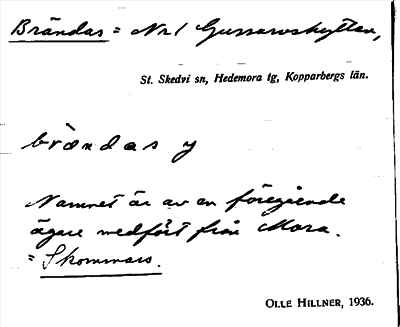 Brändas = Nr 1 Gussarvshyttan,
St. Skedvi sn, Hedemora tg, Kopparbergs län.
brändas y
Namnet är av en föregående
ägare medfört från Mora.
= Skommars.
OLLE HILLNER, 1936.